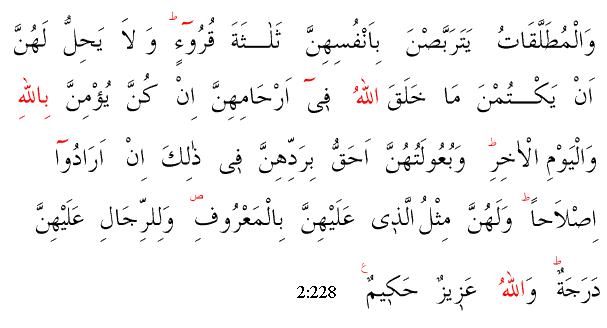 وَالْمُطَلَّقَاتُ يَتَرَبَّصْنَ بِاَنْفُسِهِنَّ ثَلٰـثَةَ قُرُوٓءٍ ؕ وَ لَا يَحِلُّ لَهُنَّ
اَنْ يَكْـتُمْنَ مَا خَلَقَ اللّٰهُ فِىٓ اَرْحَامِهِنَّ اِنْ كُنَّ يُؤْمِنَّ بِاللّٰهِ
وَالْيَوْمِ الْاٰخِرِ ؕ وَبُعُولَتُهُنَّ اَحَقُّ بِرَدِّهِنَّ فِى ذٰلِكَ اِنْ اَرَادُوٓا
اِصْلَاحاً ؕ وَلَهُنَّ مِثْلُ الَّذٖى عَلَيْهِنَّ بِالْمَعْرُوفِ ۖ وَلِلرِّجَالِ عَلَيْهِنَّ
دَرَجَةٌ ؕ وَاللّٰهُ عَزٖيزٌ حَكٖيمٌ ࣖ 2:228